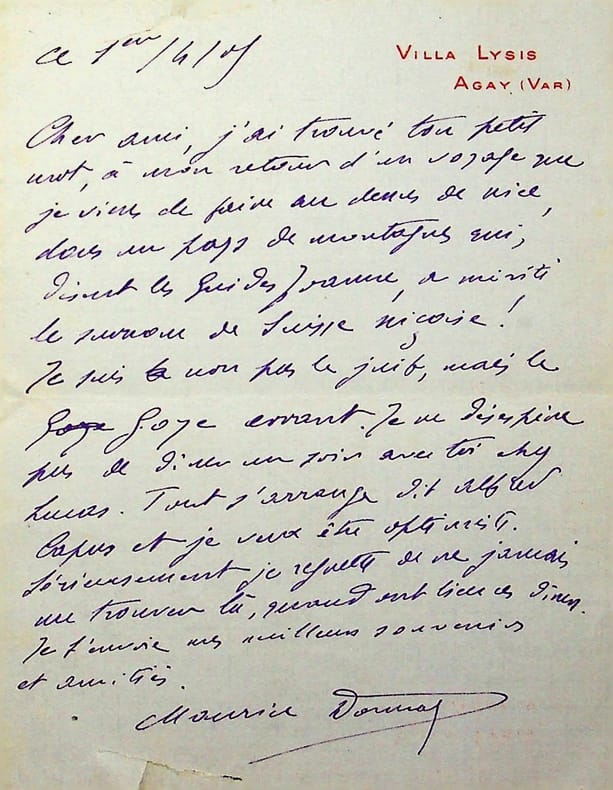 ce 1er/4/05
VILLA LYSIS
AGAY (VAR)
Cher ami, j'ai trouvé ton petit
mot, à mon retour d'un voyage que
je viens de faire au dessus de nice,
dans un pays de montagnes qui,
disent les Guides Joanne, a mérité
le surnom de Suisse niçoise !
Je suis non pas le juif, mais le
Goye errant. Je ne désespère
pas de diner un soir avec toi chez
Lucas. Tout s'arrange dit Alfred
Capus et je veux être optimiste.
Sérieusement je regrette de ne jamais
me trouver là, quand ont lieu ces diners.
Je t'envoie mes meilleurs souvenirs
et amitiés.
Maurice Donnay